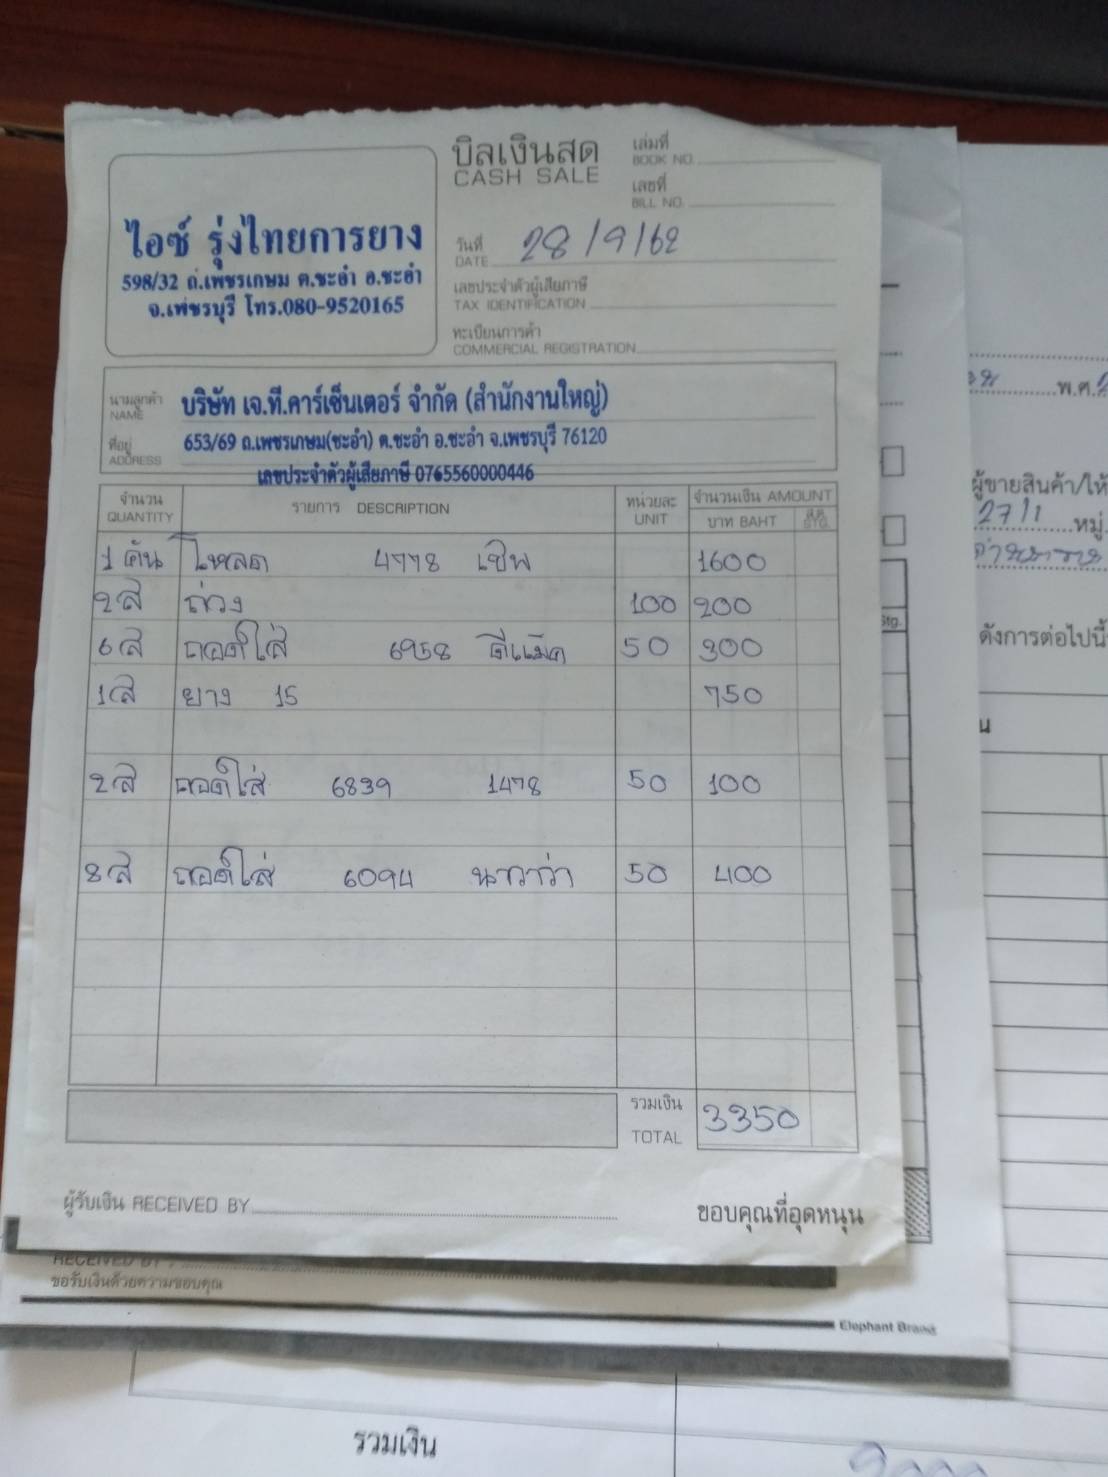 บิลเงินสด
CASH SALE
เล่มที่
BOOK NO.
เลขที่
BILL NO.
ไอซ์ รุ่งไทยการยาง
598/32 ถ.เพชรเกษม ต.ชะอำ อ.ชะอำ
จ.เพชรบุรี โทร.080-9520165
วันที่
DATE 28/9/62
เลขประจำตัวผู้เสียภาษี
TAX IDENTIFICATION
ทะเบียนการค้า
COMMERCIAL REGISTRATION
นามลูกค้า
NAME
บริษัท เจ.ที.คาร์เซ็นเตอร์ จำกัด (สำนักงานใหญ่)
ที่อยู่
ADDRESS
653/69 ถ.เพชรเกษม(ชะอำ) ต.ชะอำ อ.ชะอำ จ.เพชรบุรี 76120
เลขประจำตัวผู้เสียภาษี 0765560000446
จำนวน รายการ DESCRIPTION หน่วยละ จำนวนเงิน AMOUNT
QUANTITY UNIT บาท BAHT ส.ต. STG.
1 คัน โหลด 4778 เชิพ 1600
2 ส ถ่วง 100 200
6 ส ถอดใส่ 6958 ดีแม็ค 50 300
1 ส ยาง 15 750
2 ส ถอดใส่ 6839 1478 50 100
8 ส ถอดใส่ 6094 นาวาร่า 50 400
รวมเงิน
TOTAL 3350
ผู้รับเงิน RECEIVED BY
ขอบคุณที่อุดหนุน
RECEIVED BY
ขอรับเงินด้วยความขอบคุณ
Elephant Brand
รวมเงิน
พ.ศ.
ผู้ขายสินค้า/ให้
27/1 หมู่
ดังการต่อไปนี้
Stg.